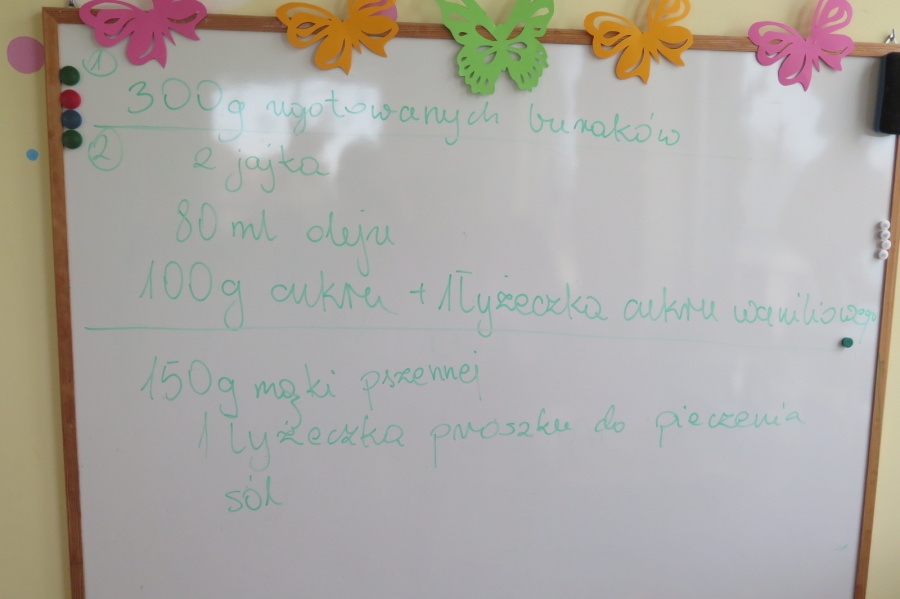 1
300g ugotowanych buraków
2
2 jajka
80 ml oleju
100g cukru + 1 łyżeczka cukru waniliowego
150g mąki pszennej
1 łyżeczka proszku do pieczenia
sól